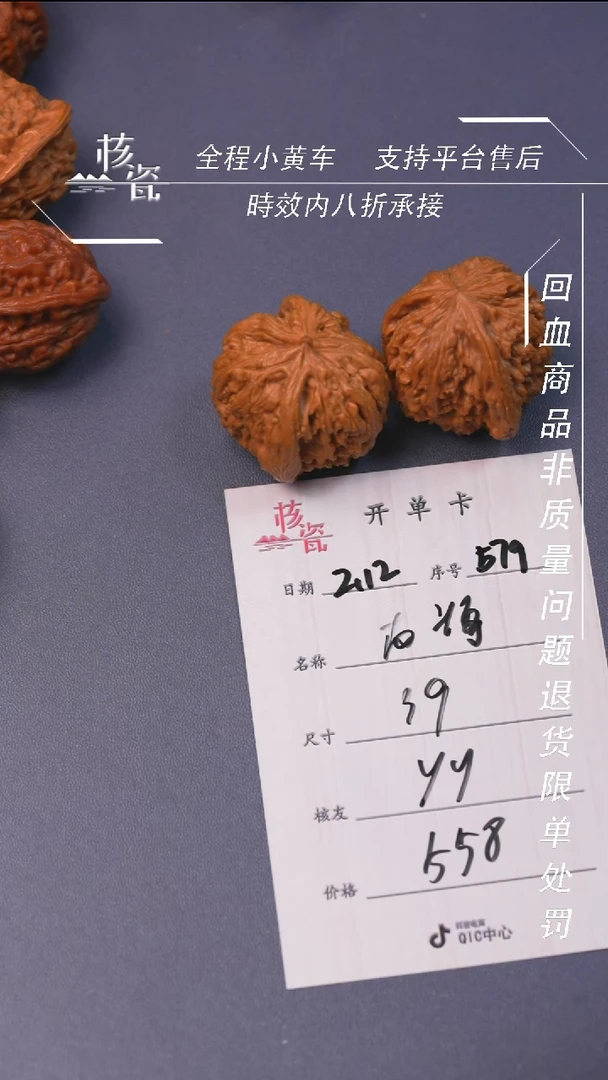 核瓷
全程小黄车 支持平台售后
時效内八折承接
回血商品非质量问题退货限单处罚
核瓷
开单卡
日期 2.12 序号 579
名称
尺寸 39
核友 yy
价格 558
抖音电商
QIC中心